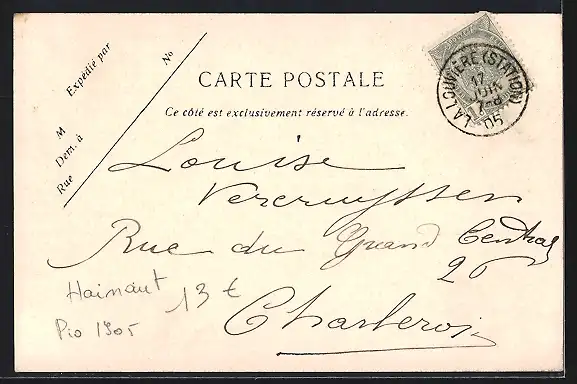 Expédié par
No
M
Dem. à
Rue
CARTE POSTALE
Ce côté est exclusivement réservé à l'adresse.
LA LOUVIÈRE (STATION)
17
JUIN
7-8
05
Louise
Vercruyssen
Rue du Grand Central
26
Charleroi
Hainaut 13 €
Pio 1905